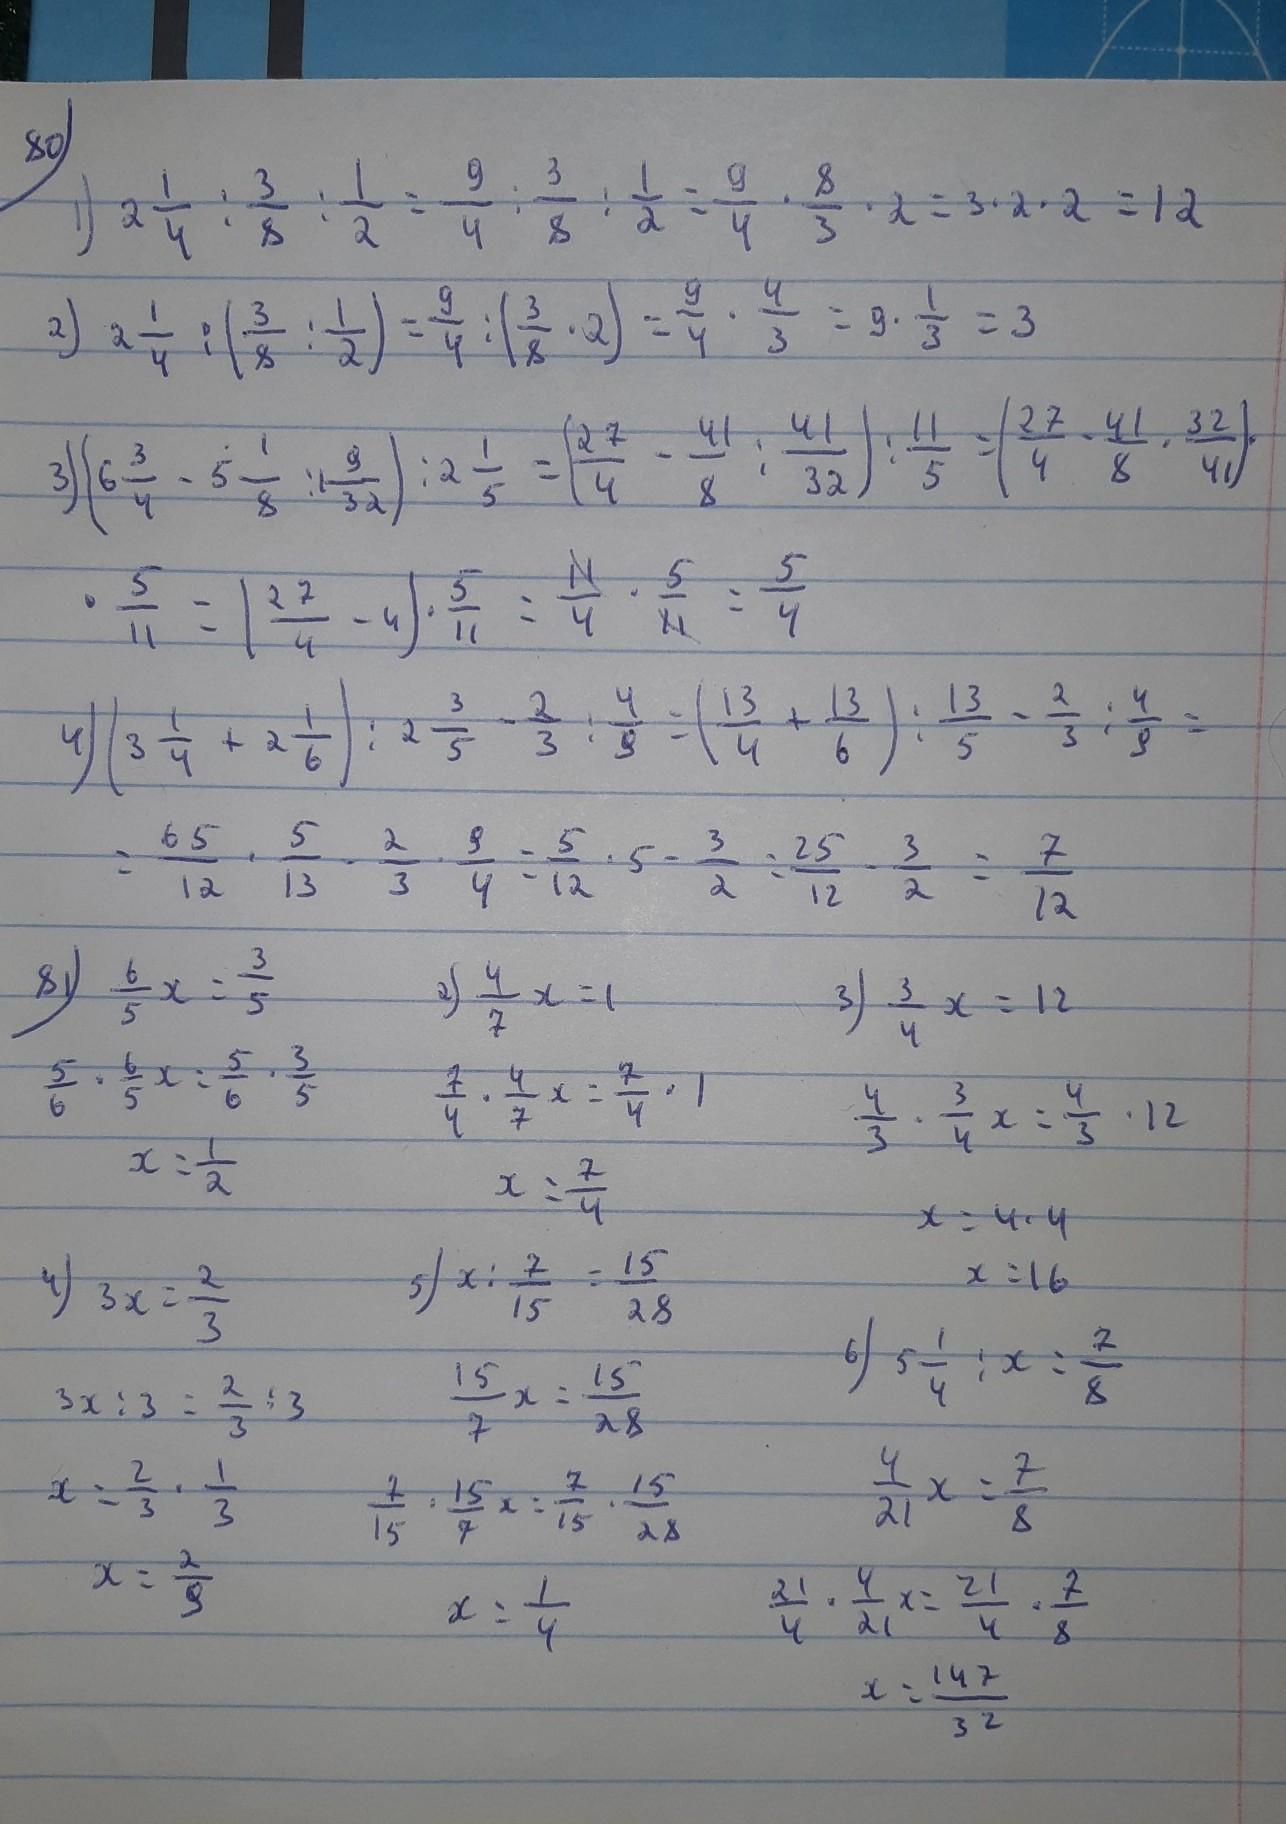 80)
1) 2 1/4 : 3/8 : 1/2 = 9/4 : 3/8 : 1/2 = 9/4 · 8/3 · 2 = 3·2·2 = 12
2) 2 1/4 : (3/8 : 1/2) = 9/4 : (3/8 · 2) = 9/4 · 4/3 = 9 · 1/3 = 3
3) (6 3/4 - 5 1/8 : 1 9/32) : 2 1/5 = (27/4 - 41/8 : 41/32) : 11/5 = (27/4 - 41/8 · 32/41) ·
· 5/11 = (27/4 - 4) · 5/11 = 11/4 · 5/11 = 5/4
4) (3 1/4 + 2 1/6) : 2 3/5 - 2/3 : 4/9 = (13/4 + 13/6) : 13/5 - 2/3 : 4/9 =
= 65/12 · 5/13 - 2/3 · 9/4 = 5/12 · 5 - 3/2 = 25/12 - 3/2 = 7/12
81) 6/5 x = 3/5
5/6 · 6/5 x = 5/6 · 3/5
x = 1/2
2) 4/7 x = 1
7/4 · 4/7 x = 7/4 · 1
x = 7/4
3) 3/4 x = 12
4/3 · 3/4 x = 4/3 · 12
x = 4·4
x = 16
4) 3x = 2/3
3x : 3 = 2/3 : 3
x = 2/3 · 1/3
x = 2/9
5) x : 7/15 = 15/28
15/7 x = 15/28
7/15 · 15/7 x = 7/15 · 15/28
x = 1/4
6) 5 1/4 : x = 7/8
4/21 x = 7/8
21/4 · 4/21 x = 21/4 · 7/8
x = 147/32